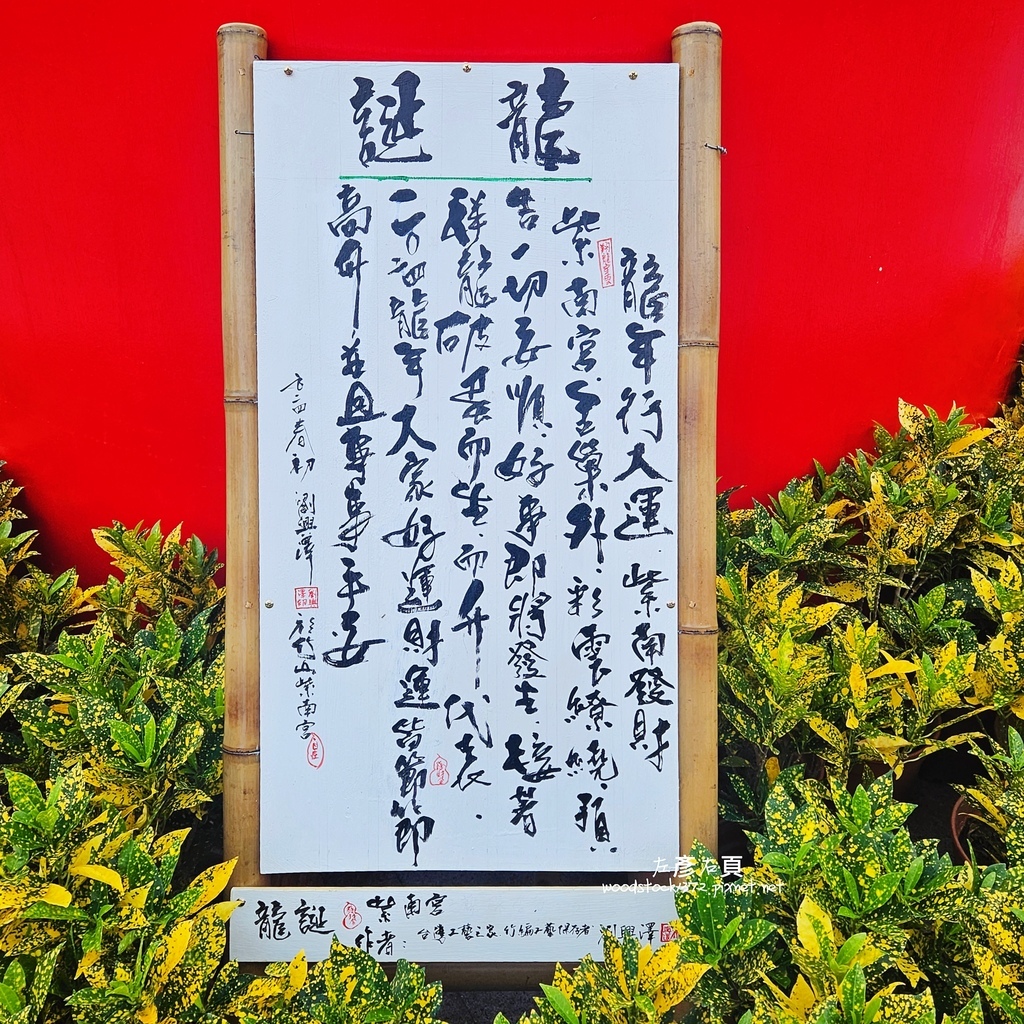 龍誕
龍年行大運.紫南發財
紫南宮.金巢外.彩雲繚繞.預
告一切妥順.好事即將發生.接著
祥龍破蛋而生.而升-代表.
二〇二四龍年大家好運財運皆節節
高升-並且事事平安
二〇二四春初 劉興澤 於竹山紫南宮
龍誕 紫南宮
作者:台灣工藝之家 竹編工藝保存者 劉興澤
左彥右頁
woodstock372.pixnet.net